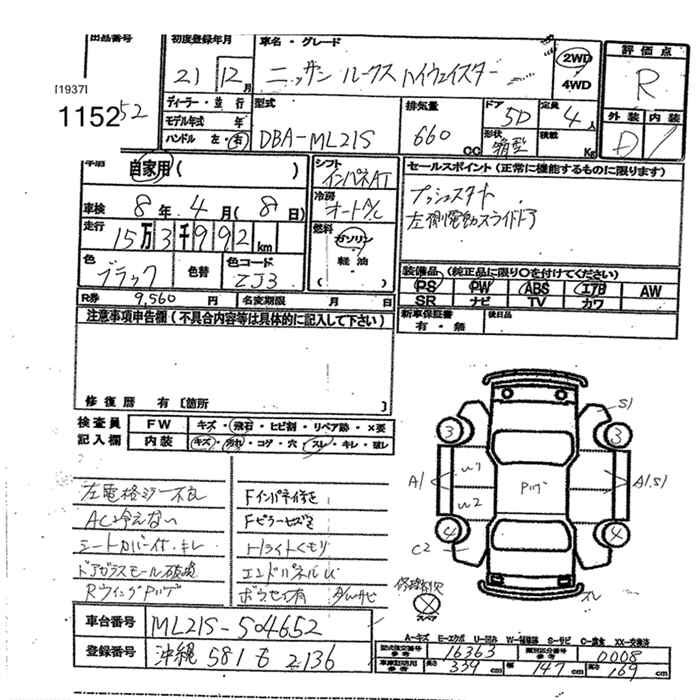 出品番号
[1937]
1152
52
初度登録年月
21年 12月
車名・グレード
ニッサン ルークス ハイウェイスター
2WD
4WD
評価点
R
外装 内装
D
ディーラー・並行
モデル年式 年
ハンドル 左・右
型式
DBA-ML21S
排気量
660 CC
ドア 5D
形状 箱型
定員 4人
積載 Kg
車歴
自家用 ( )
車検 8年 4月 (8日)
走行
15万3千992km
色
ブラック
色替
色コード
ZJ3
シフト
インパネAT
冷房
オートA/C
燃料
ガソリン
軽油
セールスポイント (正常に機能するものに限ります)
プッシュスタート
左側電動スライドドア
装備品 (純正品に限り○を付けてください)
PS PW ABS エアB AW
SR ナビ TV カワ
新車保証書
有・無
後日品
R券 9,560円 名変期限 月 日
注意事項申告欄 (不具合内容等は具体的に記入して下さい)
修復歴 有 [箇所 ]
検査員
記入欄
FW キズ・飛石・ヒビ割・リペア跡・×要
内装 キズ・汚れ・コゲ・穴・スレ・キレ・破レ
左電格ミラー不良
AC冷えない
シートカバー付・キレ
ドアガラスモール破損
RウイングPハゲ
Fインパネ付き
Fピラーキズ
Hライトくもり
エンドパネルU
ボウセイ有 下廻サビ
S1
3
3
A1
W1
W2
Pハゲ
A1.S1
4
4
C2
修復歴欠
スペア
スレ
車台番号 ML21S-504652
登録番号 沖縄 581 る 2136
A-キズ E-エクボ U-凹み W-補修跡 S-サビ C-腐食 XX-交換済
型式指定番号 参考 16363 類別区分番号 参考 0008
長さ 339cm 幅 147cm 高さ 169cm